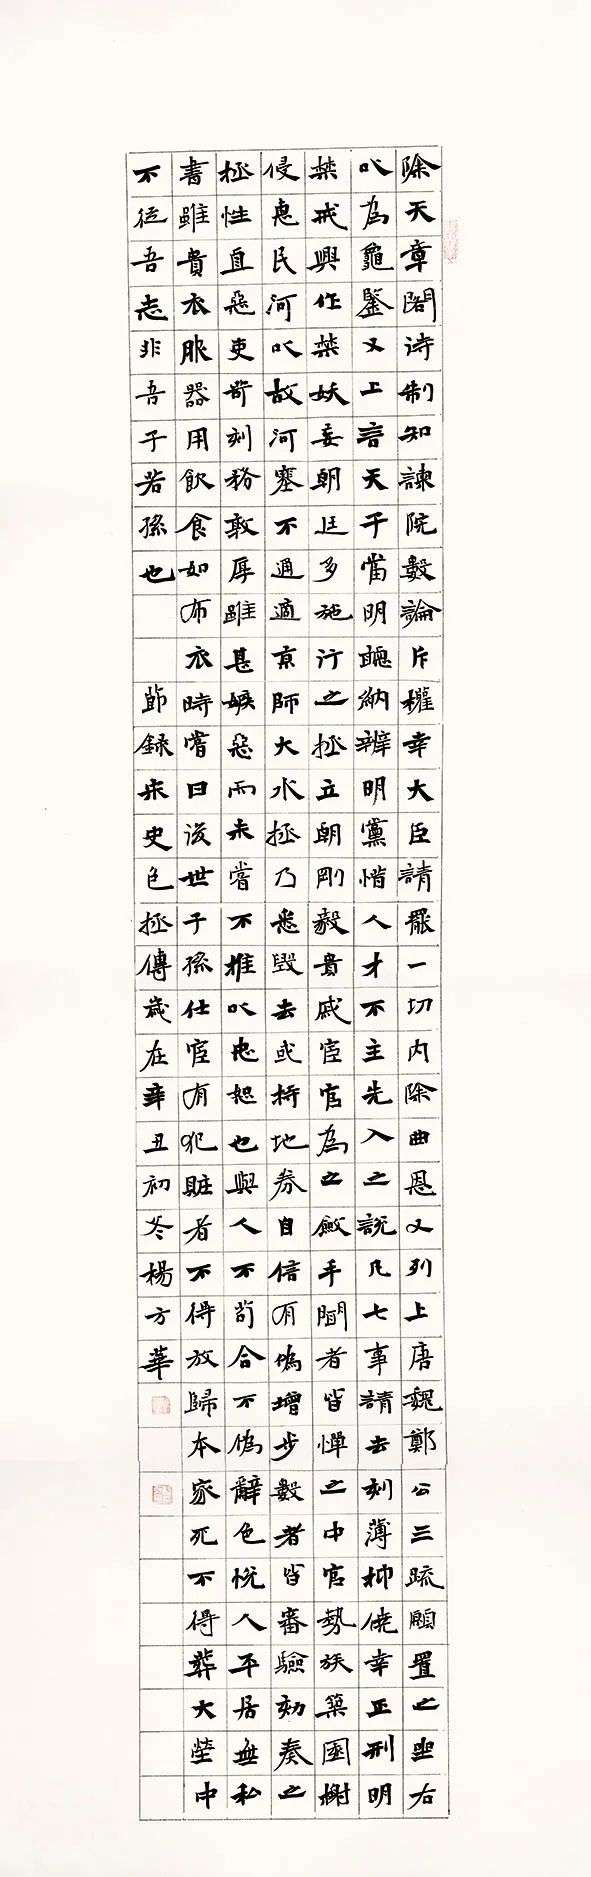 除天章閣詩制知諫院數論斥權幸大臣請罷一切内除曲恩又列上唐魏鄭公三疏願置之坐右
以為龜鑒又上言天子當明聽納辨明黨惜人才不主先入之說凡七事請去刻薄抑僥幸正刑明
禁戒興作禁妖妄朝廷多施行之拯立朝剛毅貴戚宦官為之斂手聞者皆憚之中官勢族築園榭
侵惠民河以故河塞不通適京師大水拯乃悉毀去或持地券自信有偽增步數者皆審驗劾奏之
拯性直惡吏苛刻務敦厚雖甚嫉惡而未嘗不推以忠恕也與人不苟合不偽辭色悅人平居無私
書雖貴衣服器用飲食如布衣時嘗曰後世子孫仕宦有犯贓者不得放歸本家死不得葬大塋中
不從吾志非吾子若孫也 節録宋史包拯傳歲在辛丑初冬楊方華